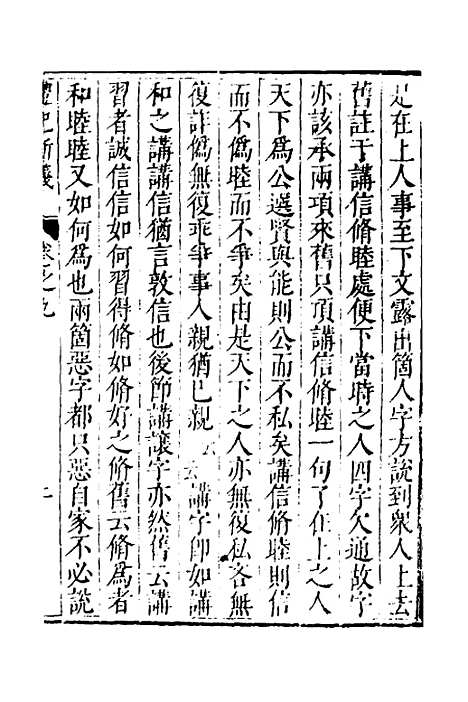 是在上人事至下文露出箇人字方說到衆人上去
舊註于講信脩睦處便下當時之人四字欠通故字
亦該承兩項來舊只頂講信脩睦一句了在上之人
天下爲公選賢與能則公而不私矣講信脩睦則信
而不僞睦而不爭矣由是天下之人亦無復私吝無
復詐僞無復乖爭事人親猶己親云云講字卽如講
和之講講信猶言敦信也後節講讓字亦然舊云講
習者誠信信如何習得脩如脩好之脩舊云脩爲者
和睦睦又如何爲也兩箇惡字都只惡自家不必說
禮記新義
卷之九
二